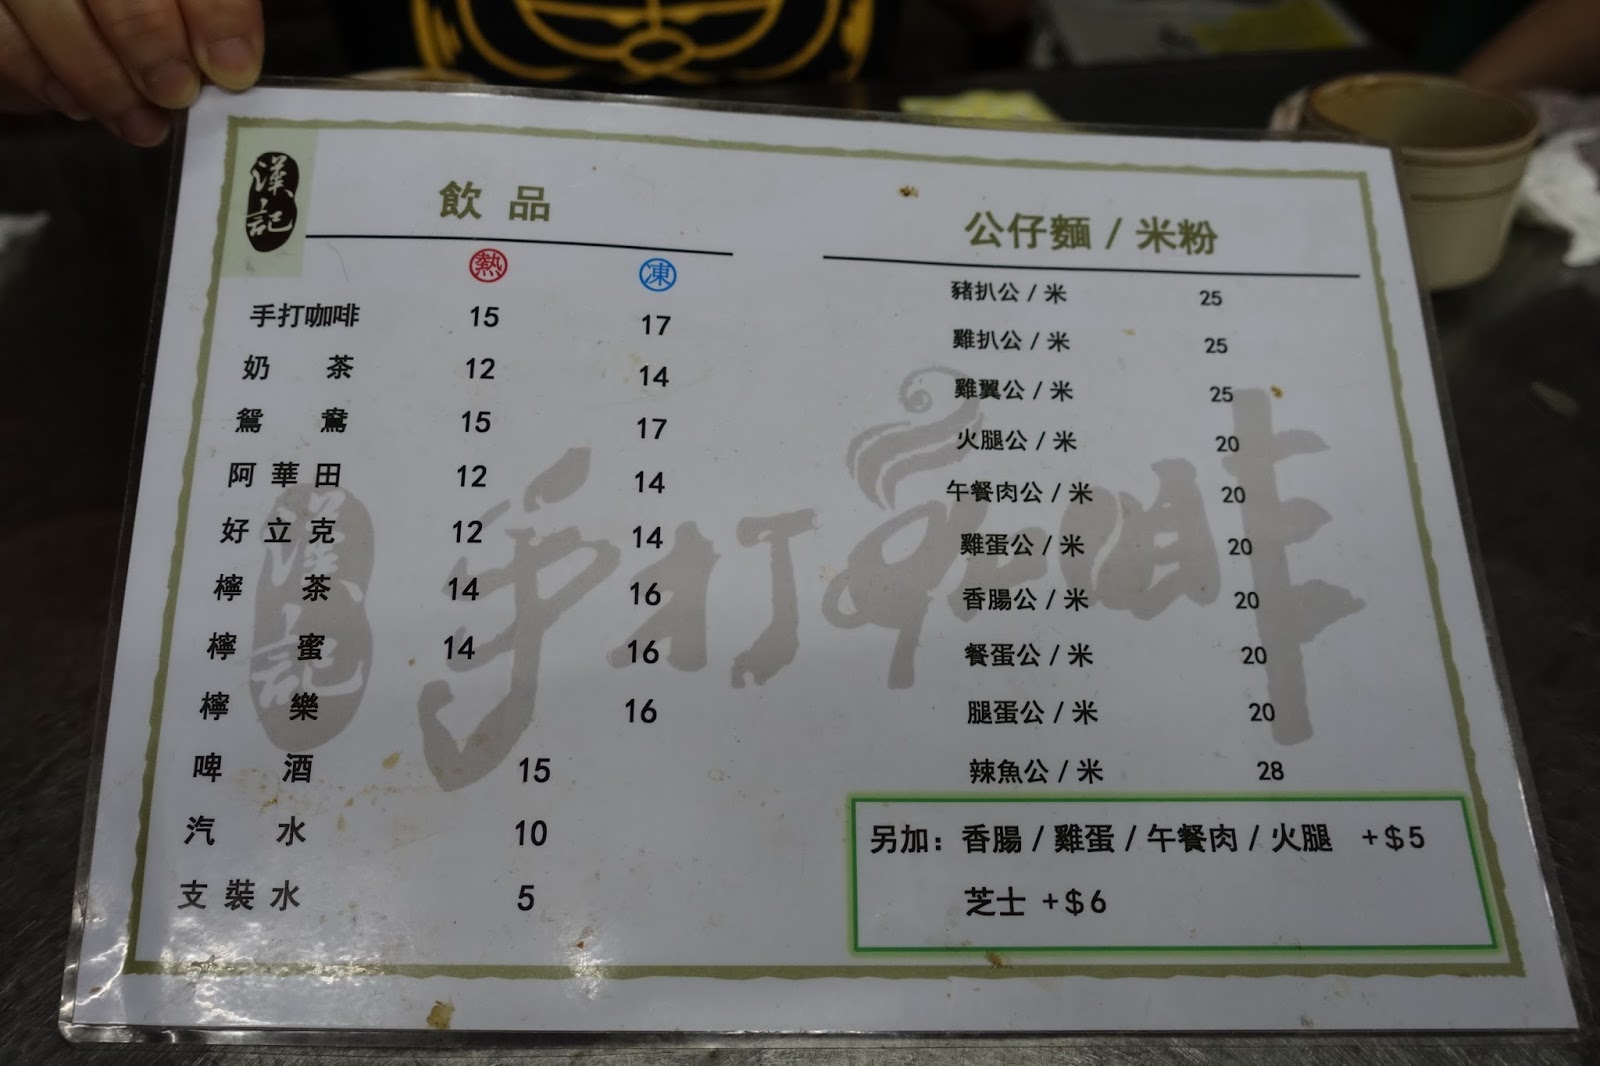 漢記
飲品
熱 凍
手打咖啡 15 17
奶茶 12 14
鴛鴦 15 17
阿華田 12 14
好立克 12 14
檸茶 14 16
檸蜜 14 16
檸樂 16
啤酒 15
汽水 10
支裝水 5
公仔麵 / 米粉
豬扒公 / 米 25
雞扒公 / 米 25
雞翼公 / 米 25
火腿公 / 米 20
午餐肉公 / 米 20
雞蛋公 / 米 20
香腸公 / 米 20
餐蛋公 / 米 20
腿蛋公 / 米 20
辣魚公 / 米 28
另加：香腸 / 雞蛋 / 午餐肉 / 火腿 +$5
芝士 +$6
漢記
手打咖啡